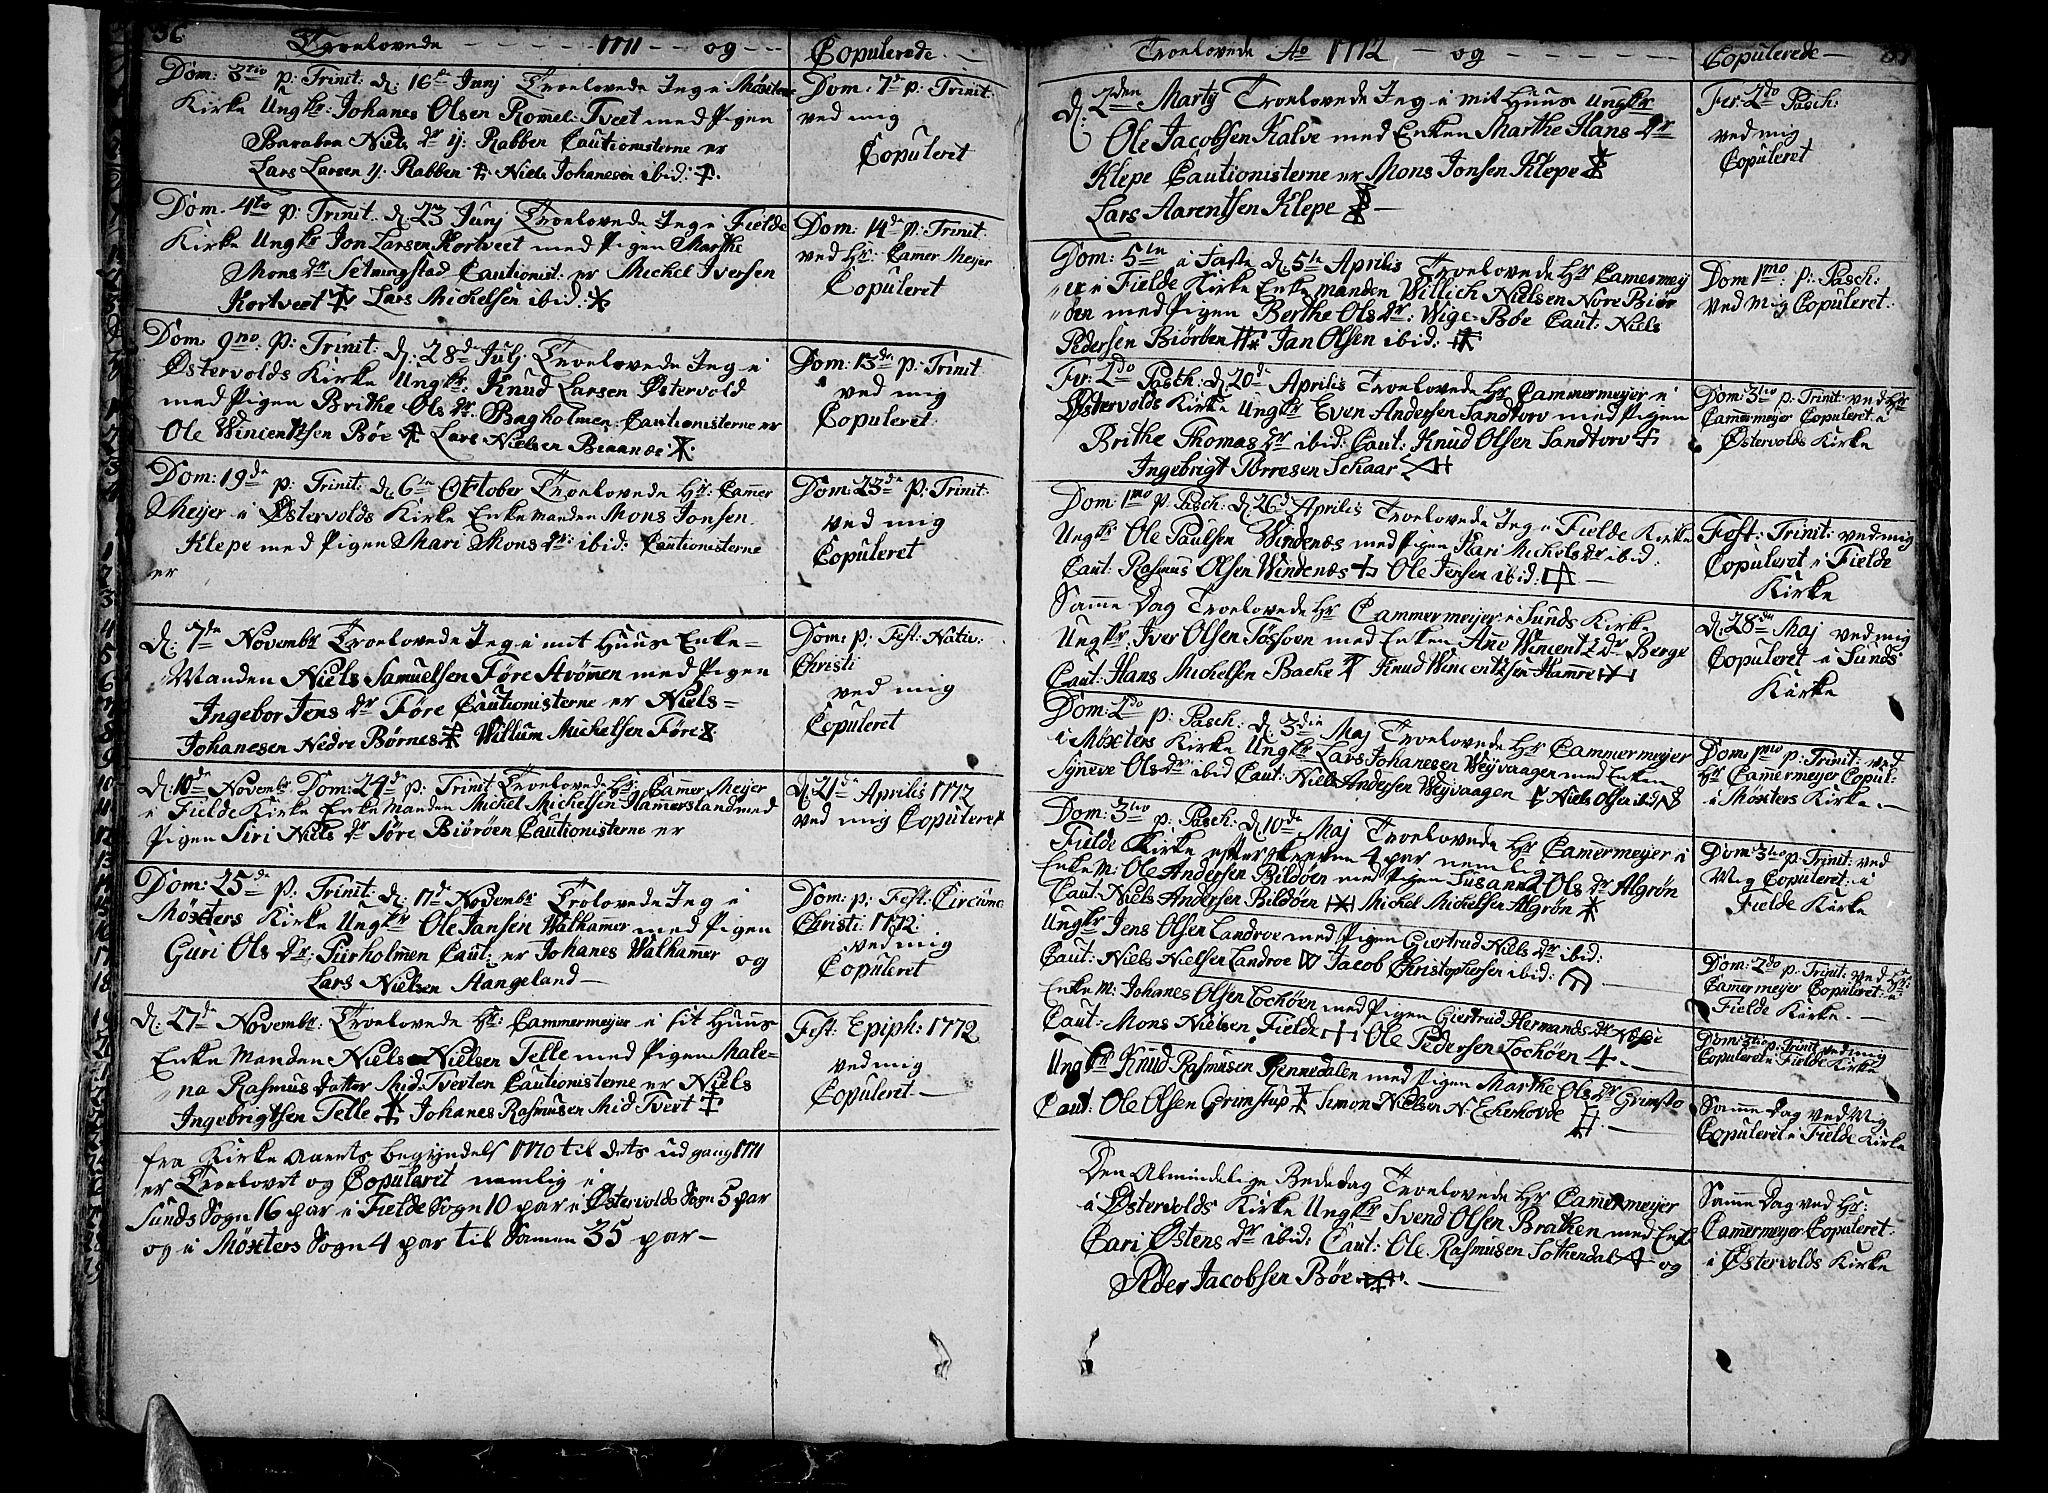 36
Troelovede - - - - 1771 - - og - - - Copulerede -
Dom: 3tio p: Trinit: d: 16de Junj Troelovede Jeg i Møxters
Kirke Ungkr: Johanes Olsen Romeli Tveet med Pigen
Barabra Niels dr y: Rabben Cautionisterne er
Lars Larsen y. Rabben Niels Johanesen ibid:
Dom: 7de p: Trinit:
ved mig
Copuleret
Dom. 4to p: Trinit. d: 23 Junj Troelovede Jeg i Fielde
Kirke Ungkr Jon Larsen Kortveet med Pigen Marthe
Mons dr Setmingstad Cautionist: er Michel Iversen
Kortveet Lars Michelsen ibid:
Dom: 14de p: Trinit:
ved Hr: Camer Meyer
Copuleret
Dom: 9no: p: Trinit: d: 28de Julj Troelovede Jeg i
Østervolds Kirke Ungkr: Knud Larsen Østervold
med Pigen Brithe Ols dr: Bagholmen Cautionisterne er
Ole Wincentzsen Bøe Lars Nielsen
Dom: 13de p: Trinit
ved mig
Copuleret.
Dom: 19de p: Trinit: d: 6te October Troelovede Hr: Camer
Meijer i Østervolds Kirke Enkemanden Mons Jonsen
Klepe med Pigen Mari Mons dr: ibid: Cautionisterne
er
Dom: 23de p: Trinit:
ved mig
Copuleret
d: 7de Novembr Troelovede Jeg i mit Huus Enke-
Manden Niels Samuelsen Føre Strømen med Pigen
Ingebor Jens dr Føre Cautionisterne er Niels-
Johanesen Nedre Børnes Willum Michelsen Føre
Dom: p: Fest: Nativ:
Christi
ved mig
Copuleret
d: 10de Novembr Dom: 24de p: Trinit Troelovede Hr: Camer Meijer
i Fielde Kirke Enke Manden Michel Michelsen Hamersland med
Pigen Siri Niels dr Søre Biörøen Cautionisterne er
d: 21de Aprilis 1772
ved mig Copuleret
Dom: 25de p: Trinit: d: 17de Novembr Trolovede Jeg i
Møxters Kirke Ungkr Ole Jansen Walhamer med Pigen
Guri Ols dr: Purholmen Caut: er Johanes Walhamer og
Lars Nielsen Aangeland -
Dom: p: Fest: Circumc
Christi 1772
ved mig
Copuleret
d: 27de Novembr: Troelovede Hr: Cammermejer i sit Huus
Enke Manden Niels Nielsen Telle med Pigen Male-
na Rasmus datter Mid Tveten Cautionisterne er Niels
Ingebrigtsen Telle Johanes Rasmusen Mid Tvert
Fest: Epiph: 1772
ved mig
Copuleret. -
fra Kirke Aarets begyndels 1770 til dets udgang 1771
er Troelovet og Copuleret nemlig i
Sunds Sogn 16 par i Fielde Sogn 10 par i Østervolds Sogn 5 par
og i Møxters Sogn 4 par til Samen 35 par -
Troelovede Ao 1772 - og Copulerede -
d: 2den Martij Troelovede Jeg i mit Huus Ungkr
Ole Jacobsen Kalve med Enken Marthe Hans dr
Klepe Cautionisterne er Mons Jonsen Klepe
Lars Aarentsen Klepe -
Fer: 2do Pasch:
ved mig
Copuleret
Dom: 5te i Faste d: 5te Aprilis Troelovede Hr Camermey
er i Fielde Kirke Enke manden Willich Nielsen Nore Biör
öen med Pigen Berthe Ols dr: Wige Bøe Caut: Niels
Pedersen Biörøen Jan Olsen ibid:
Dom 1mo: p: Pasch:
ved mig Copuleret.
Fer: 2do Pasch: d: 20de Aprilis Troelovede Hr Cammermeyer i
Østervolds Kirke Ungkr Even Andersen Sandtorv med Pigen
Brithe Thomas dr ibid: Caut: Knud Olsen Sandtorv
Ingebrigt Torresen Schaar
Dom: 3tio p: Trinit: ved Hr
Camermejer Copuleret i
Østervolds Kirke
Dom: 1mo p: Pasch: d: 26de Aprilis Troelovede Jeg i Fielde Kirke
Ungkr Ole Paulsen Windenæs med Pigen Kari Michels dr ibid:
Caut: Rasmus Olsen Windenæs Ole Jensen ibid: -
Fest: Trinit: ved mig
Copuleret i Fielde
Kirke
Same Dag Troelovede Hr Cammermeijer i Sunds Kirke
Ungkr: Iver Olsen Tössøen med Enken Ane Wincentz dr Berge
Caut: Hans Michelsen Backe Knud Wincentzsen Hamre
d: 28de Maj ved mig
Copuleret i Sunds
Kirke
Dom: 2do p: Pasch: d: 3die Maj Troelovede Hr Cammermejer
i Møxters Kirke Ungkr Lars Johanesen Weijvaagen med Enken
Syneve Ols dr ibid Caut: Niels Andersen Weijvaagen Niels Olsen ibid
Dom: 1mo p: Trinit: ved
Hr Camermejer Copul:
i Møxters Kirke. -
Dom: 3tio p: Pasch: d: 10de Maj Troelovede Hr Camermejer i
Fielde Kirke efterskrevne 4 par nemlig
Enke M: Ole Andersen Bildöen med Pigen Susanna Ols dr Algrön
Caut: Niels Andersen Bildöen Michel Michelsen Algrön
Dom: 3tio p: Trinit: ved
Mig Copuleret: i
Fielde Kirke
Ungkr Jens Olsen Landroe med Pigen Giertrud Niels dr ibid:
Caut: Niels Nielsen Landroe Jacob Christophersen ibid: -
Dom: 2do p: Trinit: ved Hr:
Camermejer Copuleret: i
Fielde Kirke. -
Enke M: Johanes Olsen Lochöen med Pigen Giertrud Hermands dr
Caut: Mons Nielsen Fielde Ole Pedersen Lochöen -
Dom: 3tio p: Trinit ved mig
Copuleret i Fielde Kirke
Ungkr Knud Rasmusen Rennedalen med Pigen Marthe Ols dr Grimsto
Caut: Ole Olsen Grimstup Simon Nielsen N: Echerhovde -
Same Dag ved Mig
Copuleret i Fielde Kirke
Den Almindelige Bededag Troelovede Hr Camermejer
i Østervolds Kirke Ungkr Svend Olsen Brathen med Enke
Cari Østens dr ibid: Caut: Ole Rasmusen Sothendal og
Peder Jacobsen Bøe -
Same Dag ved Hr:
Camermeijer Copuleret:
i Østervolds Kirke